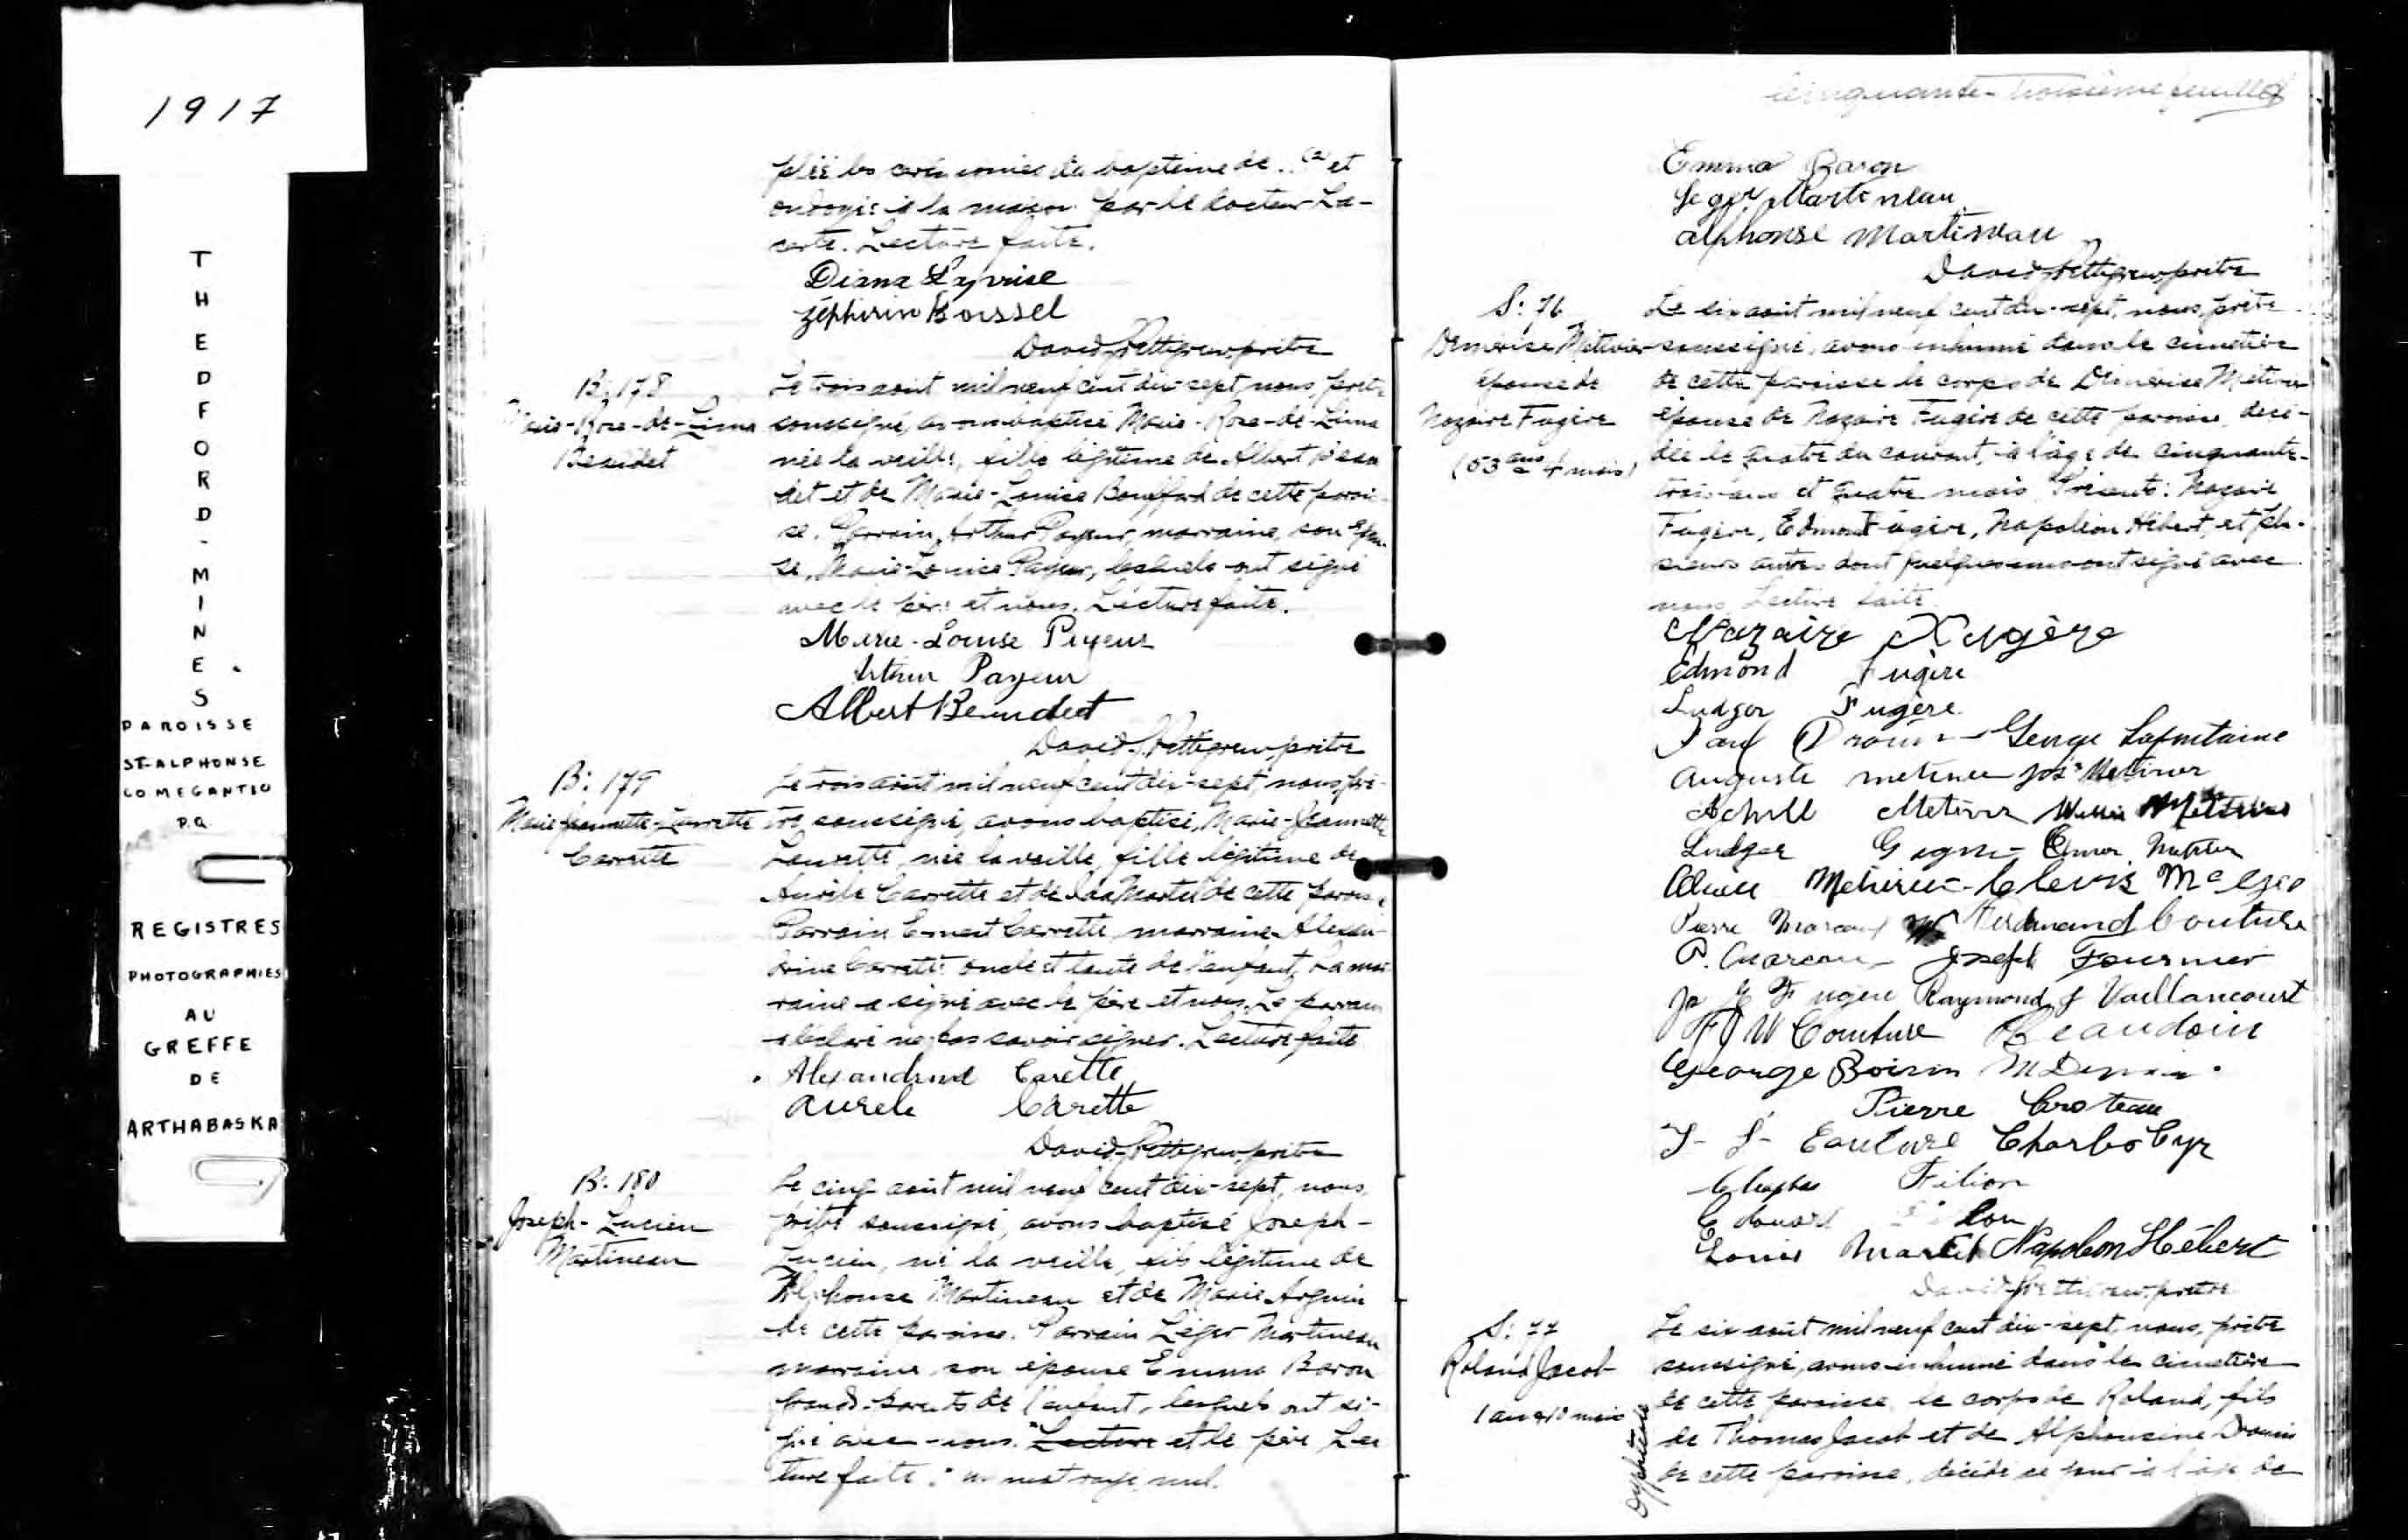 1917
THEDFORD-MINES
PAROISSE
ST-ALPHONSE
CO MEGANTIC
P.Q.
REGISTRES
PHOTOGRAPHIES
AU
GREFFE
DE
ARTHABASKA
plié les cérémonies du baptême de .. et
ondoyé à la maison par le docteur La-
certe. Lecture faite.
Diana Laprise
Zéphirin Boissel
David Pettigrew, prêtre
B: 178
Marie-Rose-de-Lima
Beaudet
Le trois août mil neuf cent dix-sept, nous, prêtre
soussigné, avons baptisé Marie-Rose-de-Lima
née la veille, fille légitime de Albert Beau
det et de Marie-Louise Bouffard de cette parois
se. Parrain, Arthur Payeur marraine, son épou
se, Marie-Louise Payeur, lesquels ont signé
avec le père et nous. Lecture faite.
Marie-Louise Payeur
Arthur Payeur
Albert Beaudet
David Pettigrew, prêtre
B: 179
Marie-Jeannette-Laurette
Carrette
Le trois août mil neuf cent dix-sept, nous, prê-
tre soussigné, avons baptisé, Marie-Jeannette
Laurette, née la veille, fille légitime de
Aurèle Carrette et de de cette paroisse
Parrain Ernest Carrette, marraine Alexan-
drine Carrette oncle et tante de l'enfant, La mar
raine a signé avec le père et nous. Le parrain
a déclaré ne pas savoir signer. Lecture faite
Alexandrine Carette
Aurele Carette
David Pettigrew, prêtre
B: 180
Joseph-Lucien
Martineau
Le cinq août mil neuf cent dix-sept, nous,
prêtre soussigné, avons baptisé Joseph-
Lucien, né la veille, fils légitime de
Alphonse Martineau et de Marie Arguin
de cette paroisse. Parrain Léger Martineau
marraine son épouse Emma Baron
grands-parents de l'enfant, lesquels ont si-
gné avec nous. Lecture et le père Lec
ture faite. un mot rayé nul.
cinquante-troisième feuillet
Emma Baron
Leger Martineau
Alphonse Martineau
David Pettigrew, prêtre
S: 76
Démérise Métivier
épouse de
Nazaire Fugère
(53 ans 4 mois)
Le six août mil neuf cent dix-sept, nous, prêtre
soussigné, avons inhumé dans le cimetière
de cette paroisse le corps de Démérise Métivier
épouse de Nazaire Fugère de cette paroisse, décé-
dée le quatre du courant, à l'âge de cinquante-
trois ans et quatre mois. Présents: Nazaire
Fugère, Edmond Fugère, Napoléon Hébert, et plu-
sieurs autres dont quelques uns ont signé avec
nous. Lecture faite.
Nazaire Fugère
Edmond Fugère
Ludger Fugère
Drouin George Lafontaine
Auguste Jos Metivier
Achill Metivier
Ludger Gagne
Clevis
Pierre Marcoux Ferdinand Couture
P. Marcoux Joseph Fournier
Fugere Raymond J Vaillancourt
W Couture Beaudoin
George Boisin
Pierre Croteau
Couture Charles Cyr
Cléophas Filion
Edouard
Louis Martel Napoléon Hébert
David Pettigrew, prêtre
S: 77
Roland Jacob
1 an et 10 mois
Dyphtérie
Le six août mil neuf cent dix-sept, nous, prêtre
soussigné, avons inhumé dans le cimetière
de cette paroisse le corps de Roland, fils
de Thomas Jacob et de Alphonsine Drouin
de cette paroisse, décédé ce jour à l'âge de